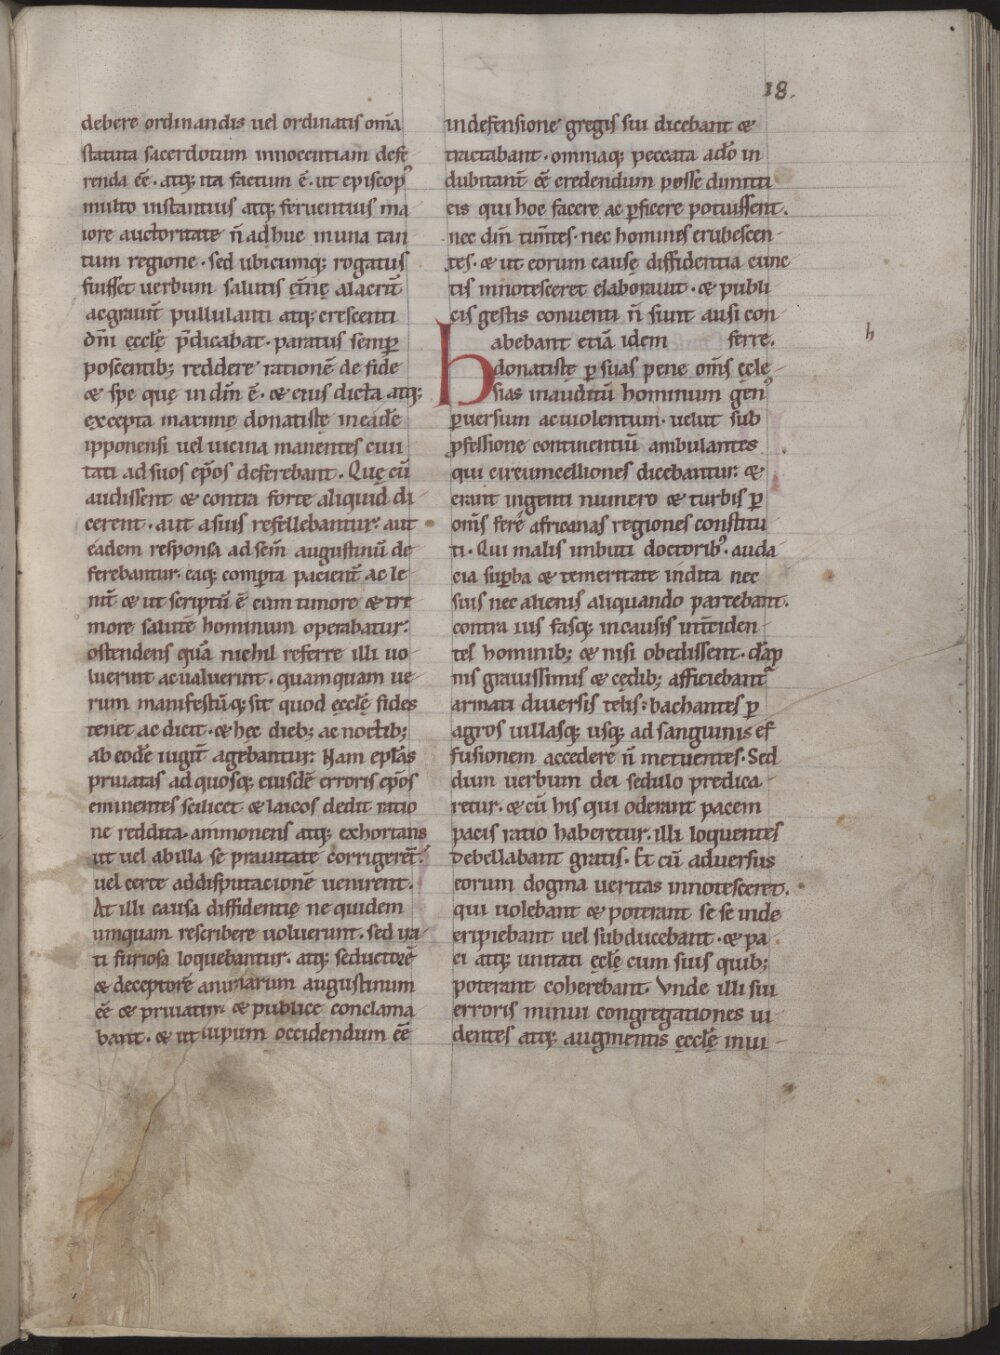 18.
debere ordinandis uel ordinatis om̄a
statuta sacerdotum innocentiam defe
renda eē. atq; ita factum ē. ut episcop᾽
multo instantius atq; feruentius ma
iore auctoritate n̄ adhuc in una tan
tum regione. sed ubicumq; rogatus
fuisset uerbum salutis ęt̄nę alacrit̄
ac grauit̄ pullulanti atq; crescenti
dn̄i ęcclę p̄dicabat. paratus semꝑ
poscentib; reddere rationē de fide
& spe quę in dn̄m ē. & eius dicta atq;
excepta maxime donatistę in eadē
ipponensi uel uicina manentes ciui
tati ad suos ep̄os deferebant. Quę cū
audissent & contra forte aliquid di
cerent. aut a suis refellebantur: aut
eadem responsa ad sc̄m augustinū de
ferebantur. eaq; comperta pacient̄ ac le
nit̄ & ut scriptū ē cum timore & tre
more salutē hominum operabatur:
ostendens quā nichil referre illi uo
luerunt ac ualuerunt. quamquam ue
rum manifestūq; sit quod ęcclę fides
tenet ac dicit. & hęc dieb; ac noctib;
ab eodē iugit̄ agebantur. Nam epl̄as
priuatas ad quosq; eiusdē erroris ep̄os
eminentes scilicet & laicos dedit ratio
ne reddita. ammonens atq; exhortans
ut uel ab illa se prauitate corrigerēt:
uel certe ad disputacionē uenirent.
At illi causa diffidentię ne quidem
umquam rescribere uoluerunt. sed ira
ti furiosa loquebantur. atq; seductorē
& deceptorē animarum augustinum
eē & priuatim & publice conclama
bant. & ut lupum occidendum eē
in defensione gregis sui dicebant &
tractabant. omniaq; peccata a dō in
dubitant̄ eē credendum posse dimitti
eis qui hoc facere ac ꝑficere potuissent.
nec dm̄ tim̄tes. nec homines erubescen
tes. & ut eorum causę diffidentia cunc
tis innotesceret elaborauit. & publi
cis gestis conuenti n̄ sunt ausi con
ferre.
habebant etiā idem
donatistę ꝑ suas pene om̄s ęcle
sias inauditū hominum gen᾽
ꝑuersum ac uiolentum. uelut sub
ꝓfessione continentiū ambulantes
qui circumcelliones dicebantur: &
erant ingenti numero & turbis ꝑ
om̄s ferē africanas regiones constitu
ti. Qui malis imbuti doctorib᾽. auda
cia suꝑba & temeritate indita nec
suis nec alienis aliquando parcebant.
contra ius fasq; in causis int̄ciden
tes hominib; & nisi obedissent. dāp
nis grauissimis & cędib; afficiebant᾽
armati diuersis telis: bachantes ꝑ
agros uillasq; usq; ad sanguinis ef
fusionem accedere n̄ metuentes. Sed
dum uerbum dei sedulo predica
retur. & cū his qui oderant pacem
pacis ratio haberetur. illi loquentes
debellabant gratis. Et cū aduersus
eorum dogma ueritas innotesceret.
qui uolebant & poterant se se inde
eripiebant uel subducebant. & pa
ci atq; unitati ęclę cum suis quib;
poterant coherebant Vnde illi sui
erroris minui congregationes ui
dentes atq; augmentis ęcclę inui
h